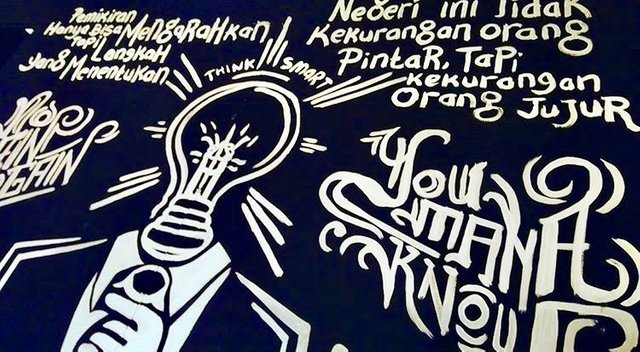 Pemikiran
Hanya Bisa MengARAHkan
Tapi Langkah
yang Menentukan
THINK SMART
Negeri ini Tidak
Kekurangan orang
PintaR, TaPi
kekurangan
Orang JujuR
You
SMANA
KNOW